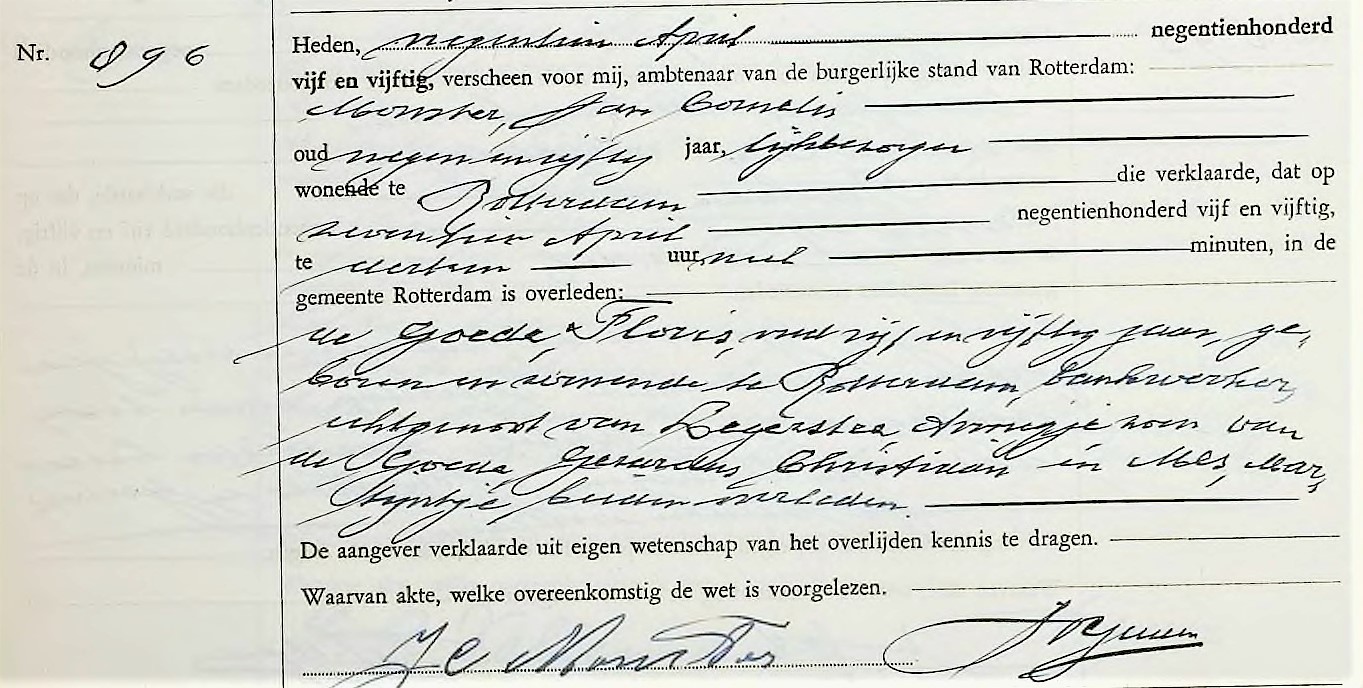 Nr. 896
Heden, negentien April negentienhonderd
vijf en vijftig, verscheen voor mij, ambtenaar van de burgerlijke stand van Rotterdam:
Monster, Jan Cornelis
oud negen en vijftig jaar, lijkbezorger
wonende te Rotterdam die verklaarde, dat op
zeventien April negentienhonderd vijf en vijftig,
te dertien uur, nul minuten, in de
gemeente Rotterdam is overleden:
de Goede, Floris, oud vijf en vijftig jaar, ge-
boren en wonende te Rotterdam, bankwerker,
echtgenoot van Legerstee, Annigje zoon van
de Goede, Gerardus Christiaan en Mes, Mar-
tijntje, beiden overleden.
De aangever verklaarde uit eigen wetenschap van het overlijden kennis te dragen.
Waarvan akte, welke overeenkomstig de wet is voorgelezen.
J C Monster